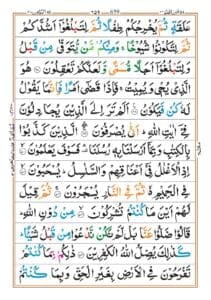 عَلَقَةٍ ثُمَّ يُخْرِجُكُمْ طِفْلًا ثُمَّ لِتَبْلُغُوْٓا اَشُدَّكُمْ
ثُمَّ لِتَكُوْنُوْا شُيُوْخًا ۚ وَمِنْكُمْ مَّنْ يُّتَوَفّٰى مِنْ قَبْلُ
وَلِتَبْلُغُوْٓا اَجَلًا مُّسَمًّى وَّلَعَلَّكُمْ تَعْقِلُوْنَ ۝ هُوَ
الَّذِيْ يُحْيٖ وَيُمِيْتُ ۚ فَاِذَا قَضٰٓى اَمْرًا فَاِنَّمَا يَقُوْلُ
لَهٗ كُنْ فَيَكُوْنُ ۝ اَلَمْ تَرَ اِلَى الَّذِيْنَ يُجَادِلُوْنَ
فِيْٓ اٰيٰتِ اللّٰهِ ۗ اَنّٰى يُصْرَفُوْنَ ۝ الَّذِيْنَ كَذَّبُوْا
بِالْكِتٰبِ وَبِمَآ اَرْسَلْنَا بِهٖ رُسُلَنَا ۛ فَسَوْفَ يَعْلَمُوْنَ ۝
اِذِ الْاَغْلٰلُ فِيْٓ اَعْنَاقِهِمْ وَالسَّلٰسِلُ ۗ يُسْحَبُوْنَ ۝
فِي الْحَمِيْمِ ۙ ثُمَّ فِي النَّارِ يُسْجَرُوْنَ ۝ ثُمَّ قِيْلَ
لَهُمْ اَيْنَ مَا كُنْتُمْ تُشْرِكُوْنَ ۝ مِنْ دُوْنِ اللّٰهِ ۗ
قَالُوْا ضَلُّوْا عَنَّا بَلْ لَّمْ نَكُنْ نَّدْعُوْا مِنْ قَبْلُ شَيْـًٔا ۗ
كَذٰلِكَ يُضِلُّ اللّٰهُ الْكٰفِرِيْنَ ۝ ذٰلِكُمْ بِمَا كُنْتُمْ
تَفْرَحُوْنَ فِي الْاَرْضِ بِغَيْرِ الْحَقِّ وَبِمَا كُنْتُمْ